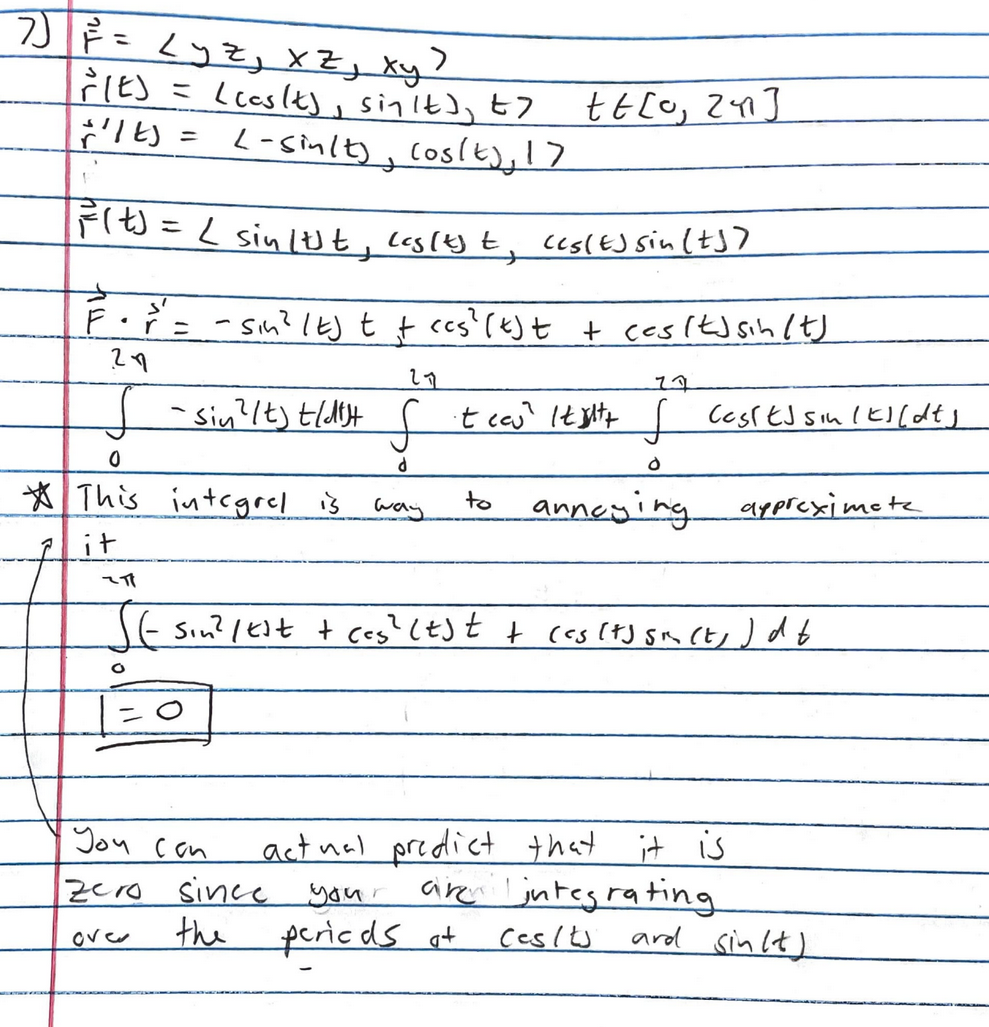 7) F⃗ = <yz, xz, xy>
r⃗(t) = <cos(t), sin(t), t> t∈[0, 2π]
r⃗'(t) = <-sin(t), cos(t), 1>
F⃗(t) = < sin(t)t, cos(t) t, cos(t)sin(t)>
F⃗ · r⃗' = -sin²(t) t + cos²(t)t + cos(t)sin(t)
∫₀^2π -sin²(t) t(dt)+ ∫₀^2π t cos²(t)dt+ ∫₀^2π cos(t)sin(t)(dt)
☆ This integral is way to annoying approximate
it
∫₀^2π (- sin²(t)t + cos²(t)t + cos(t)sin(t)) dt
= 0
You can actual predict that it is
zero since your are integrating
over the periods of cos(t) and sin(t)